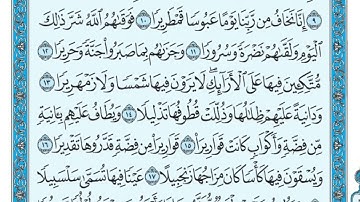 ٩ إِنَّا نَخَافُ مِن رَّبِّنَا يَوْمًا عَبُوسًا قَمْطَرِيرًا ١٠ فَوَقَىٰهُمُ ٱللَّهُ شَرَّ ذَٰلِكَ
ٱلْيَوْمِ وَلَقَّىٰهُمْ نَضْرَةً وَسُرُورًا ١١ وَجَزَىٰهُم بِمَا صَبَرُوا۟ جَنَّةً وَحَرِيرًا ١٢
مُّتَّكِـِٔينَ فِيهَا عَلَى ٱلْأَرَآئِكِ ۖ لَا يَرَوْنَ فِيهَا شَمْسًا وَلَا زَمْهَرِيرًا ١٣
وَدَانِيَةً عَلَيْهِمْ ظِلَٰلُهَا وَذُلِّلَتْ قُطُوفُهَا تَذْلِيلًا ١٤ وَيُطَافُ عَلَيْهِم بِـَٔانِيَةٍ
مِّن فِضَّةٍ وَأَكْوَابٍ كَانَتْ قَوَارِيرَا۠ ١٥ قَوَارِيرَا۟ مِن فِضَّةٍ قَدَّرُوهَا تَقْدِيرًا ١٦
وَيُسْقَوْنَ فِيهَا كَأْسًا كَانَ مِزَاجُهَا زَنجَبِيلًا ١٧ عَيْنًا فِيهَا تُسَمَّىٰ سَلْسَبِيلًا